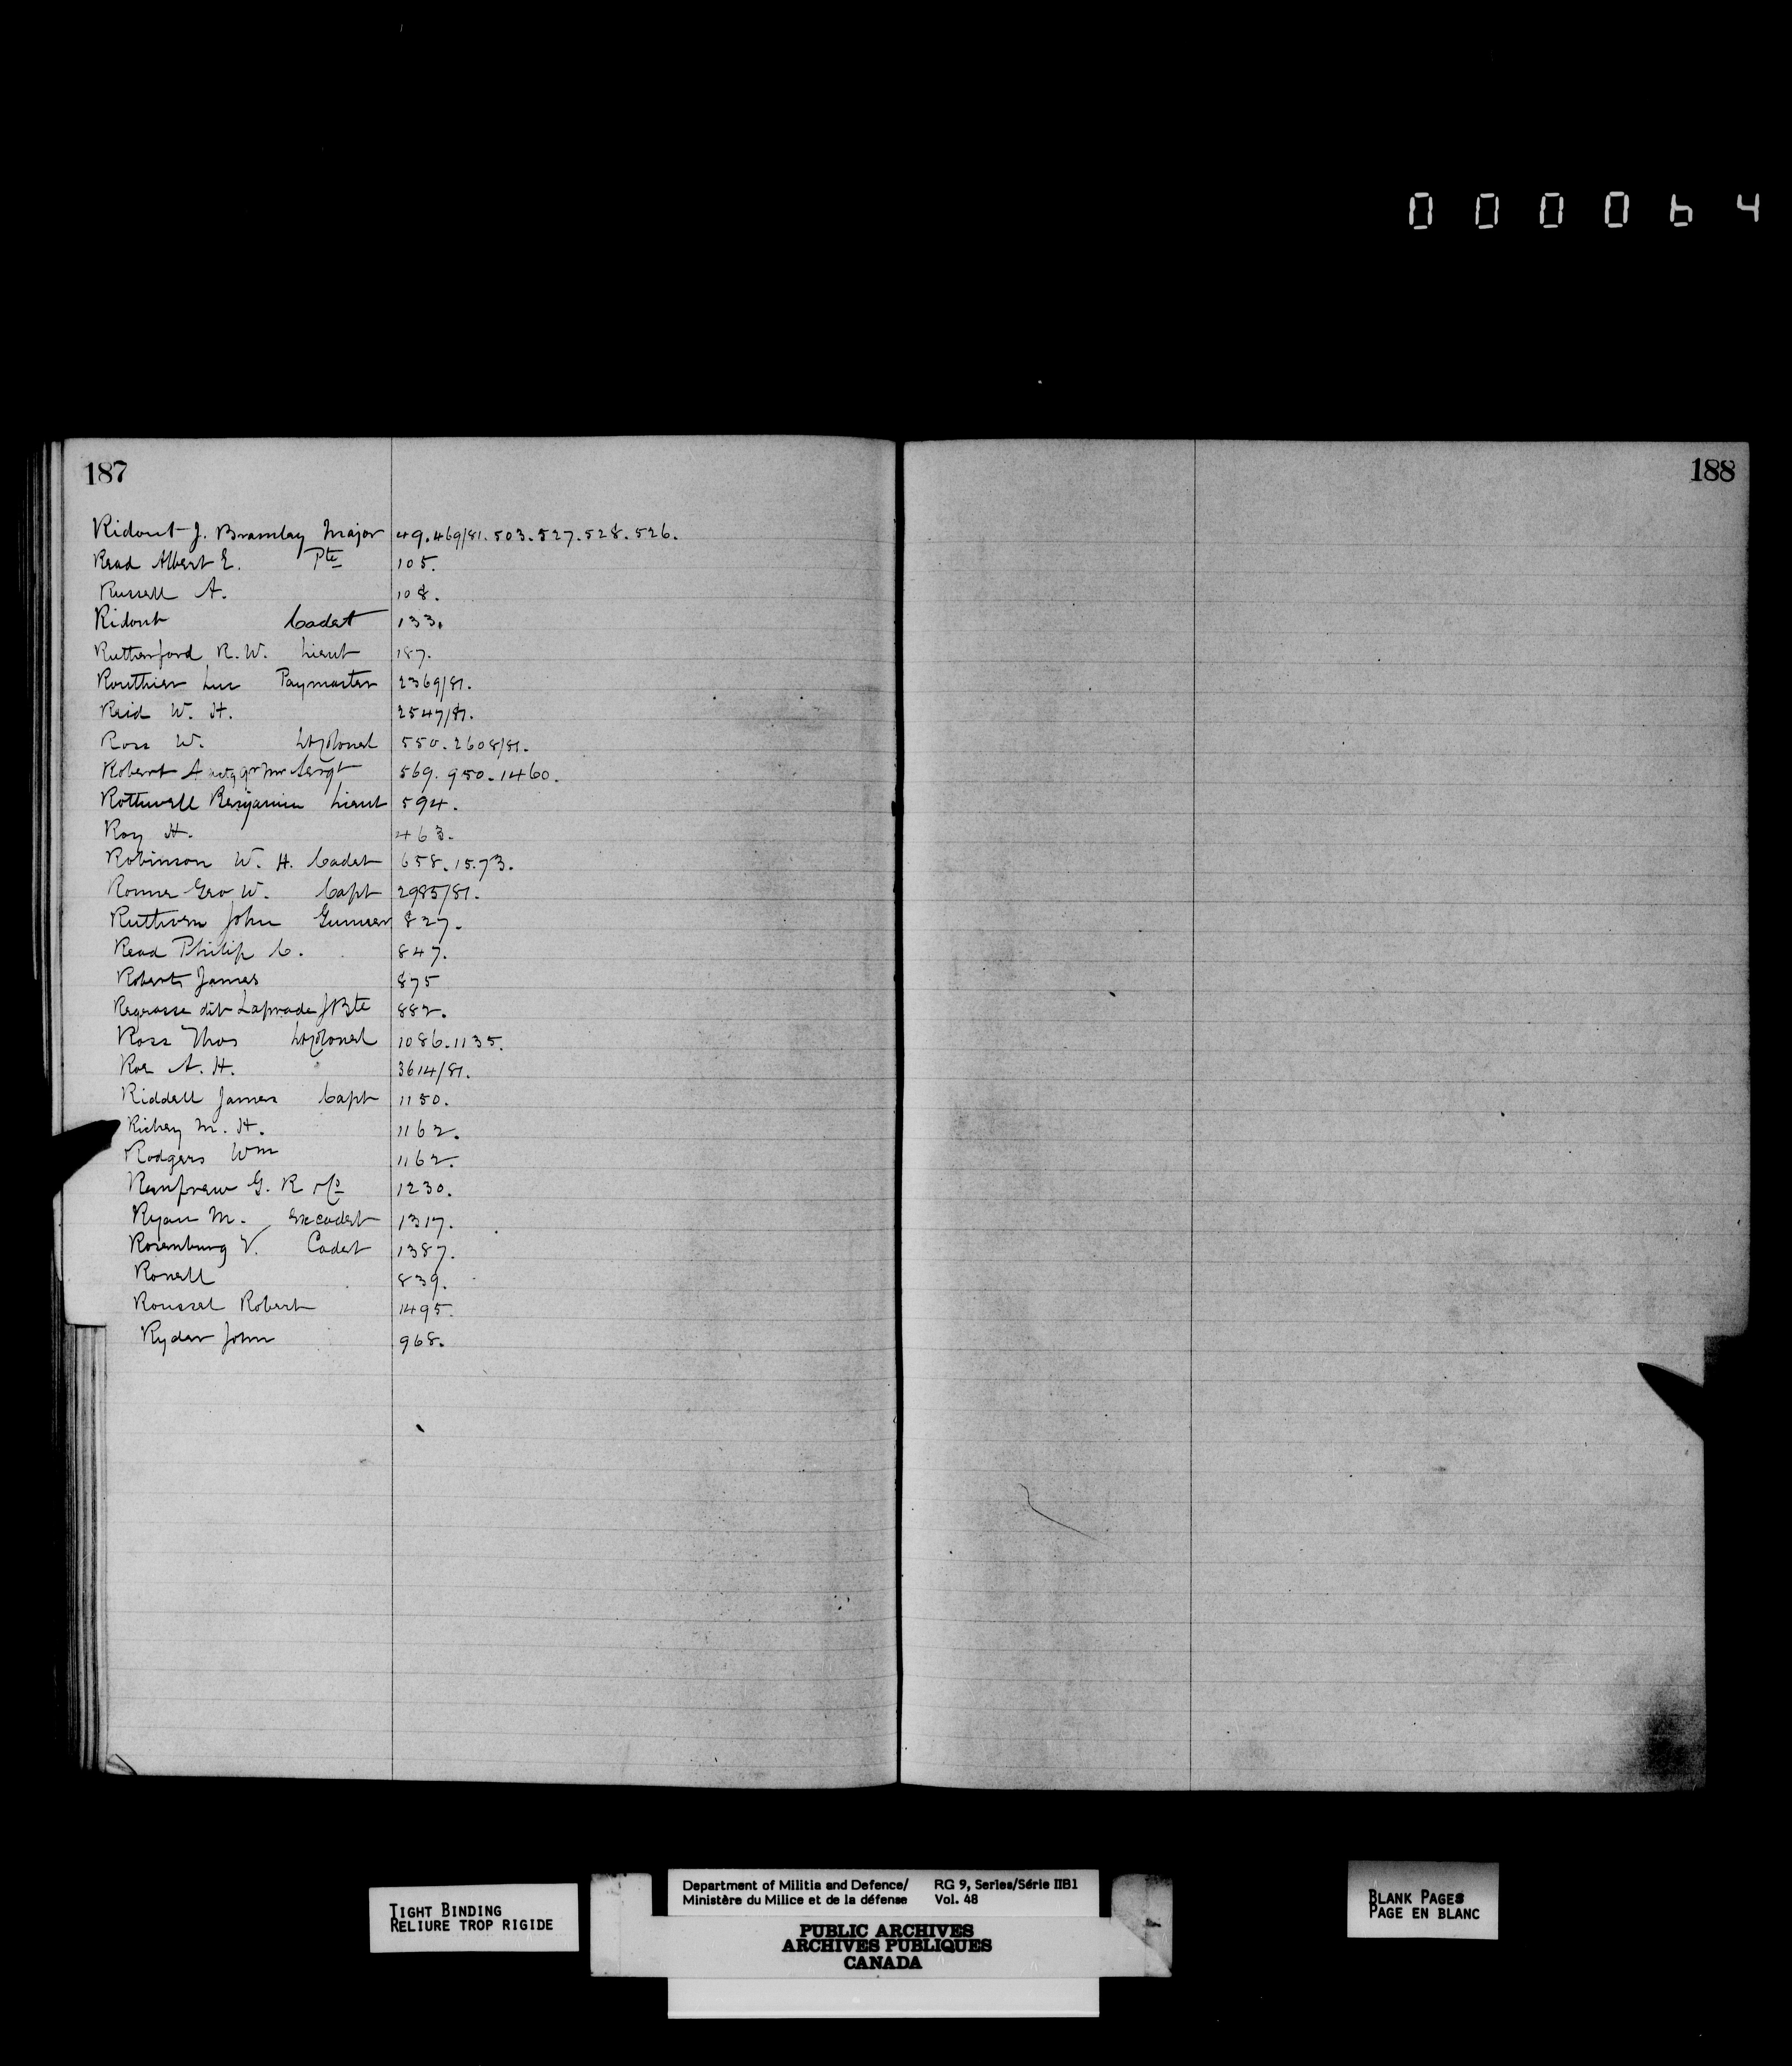 000064
187
188
Ridout J. Bramley Major 49.469/81.503.527.528.526.
Read Albert E. Pte 105.
Russell A. 108.
Ridout Cadet 133.
Rutherford R.W. Lieut 187.
Routhier Luc Paymaster 2369/81.
Reid W. H. 2547/81.
Ross W. Lt Colonel 550.2608/81.
Robert A actg Qr Mr Sergt 569.950.1460.
Rothwell Benjamin Lieut 594.
Roy H. 463.
Robinson W. H. Cadet 658.1573.
Romer Geo W. Capt 2985/81.
Ruthven John Gunner 827.
Read Philip C. 847.
Roberts James 875
dit Laprade JBte 882.
Ross Thos Lt Colonel 1086.1135.
Roe A. H. 3614/81.
Riddell James Capt 1150.
Richey M. H. 1162.
Rodgers Wm 1162.
Renfrew G. R &Co 1230.
Ryan M. Ex cadet 1317.
Rosenburg V. Cadet 1387.
839.
Roussel Robert 1495.
Ryder John 968.
TIGHT BINDING
RELIURE TROP RIGIDE
Department of Militia and Defence/ RG 9, Series/Série IIB1
Ministère du Milice et de la défense Vol. 48
PUBLIC ARCHIVES
ARCHIVES PUBLIQUES
CANADA
BLANK PAGES
PAGE EN BLANC